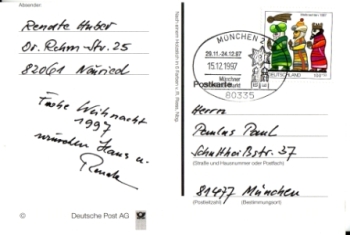 Absender
Renate Huber
Dr. Rehm-Str. 25
82061 Neuried
Frohe Weihnacht
1997
wünschen Hans u.
Renate
© Deutsche Post AG
MÜNCHEN 2
29.11.-24.12.97
15.12.1997
Münchner
80335
DEUTSCHLAND
Postkarte
Herrn
Paulus Paul
Schultheißstr. 37
(Straße und Hausnummer oder Postfach)
81477 München
(Postleitzahl) (Bestimmungsort)